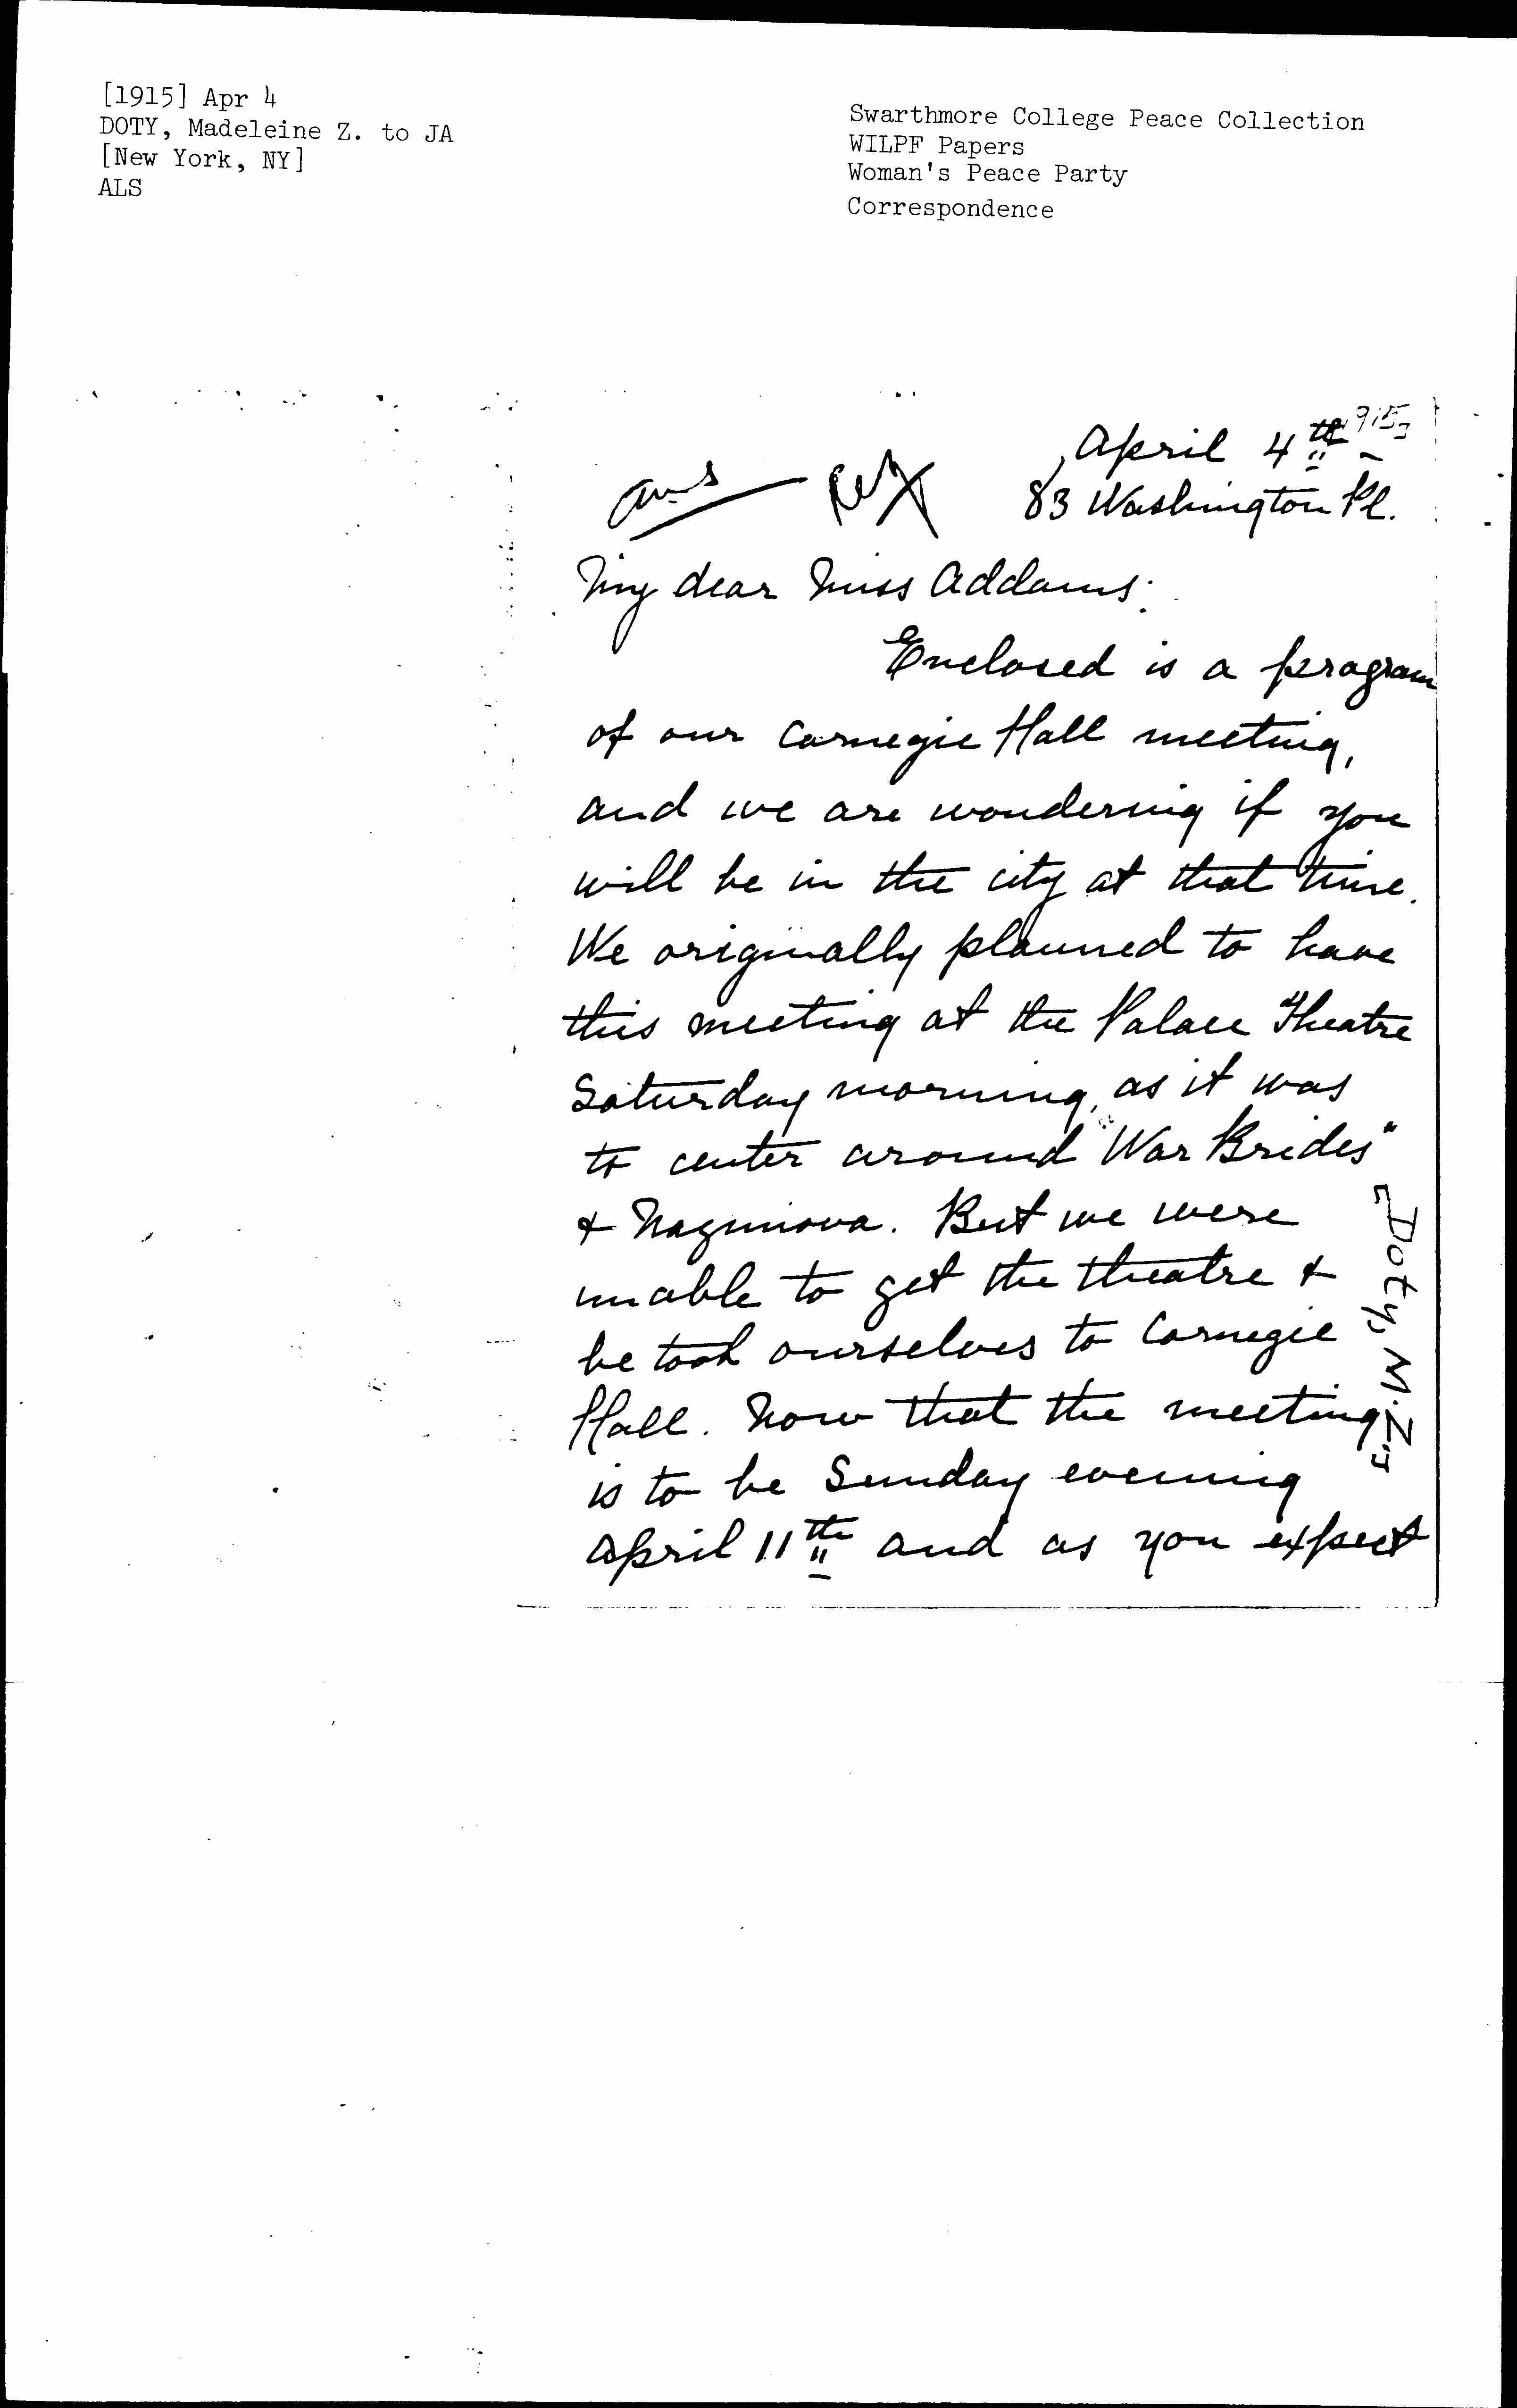 [1915] Apr 4
DOTY, Madeleine Z. to JA
[New York, NY]
ALS
Swarthmore College Peace Collection
WILPF Papers
Woman's Peace Party
Correspondence
April 4th 1915]
ans
83 Washington Pl.
My dear Miss Addams:
Enclosed is a program
of our Carnegie Hall meeting,
and we are wondering if you
will be in the city at that time.
We originally planned to have
this meeting at the Palace Theatre
Saturday morning, as it was
to center around "War Brides"
& Nazimova. But we were
unable to get the theatre &
be took ourselves to Carnegie
Hall. Now that the meeting
is to be Sunday evening
April 11th and as you expect
[Doty, M.Z.]